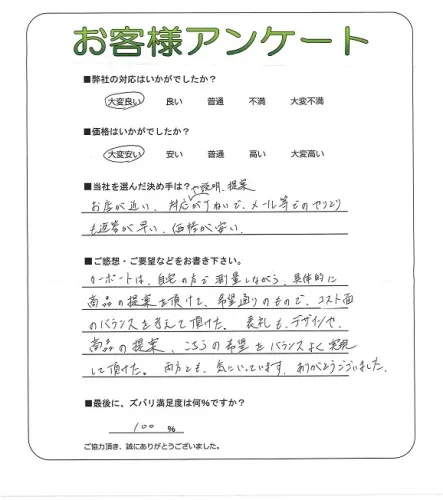 お客様アンケート
■弊社の対応はいかがでしたか？
大変良い 良い 普通 不満 大変不満
■価格はいかがでしたか？
大変安い 安い 普通 高い 大変高い
■当社を選んだ決め手は？
や説明、提案
お店が近い、対応がていねいで、メール等でのやりとり
も返答が早い、価格が安い
■ご感想・ご要望などをお書き下さい。
カーポートは、自宅の方で測量しながら、具体的に
商品の提案を頂けて、希望通りのもので、コスト面
のバランスを考えて頂けた。表札も、デザインや、
商品の提案、こちらの希望をバランスよく実現
して頂けた。両方とも、気にいっています。ありがとうございました。
■最後に、ズバリ満足度は何%ですか？
100 %
ご協力頂き、誠にありがとうございました。